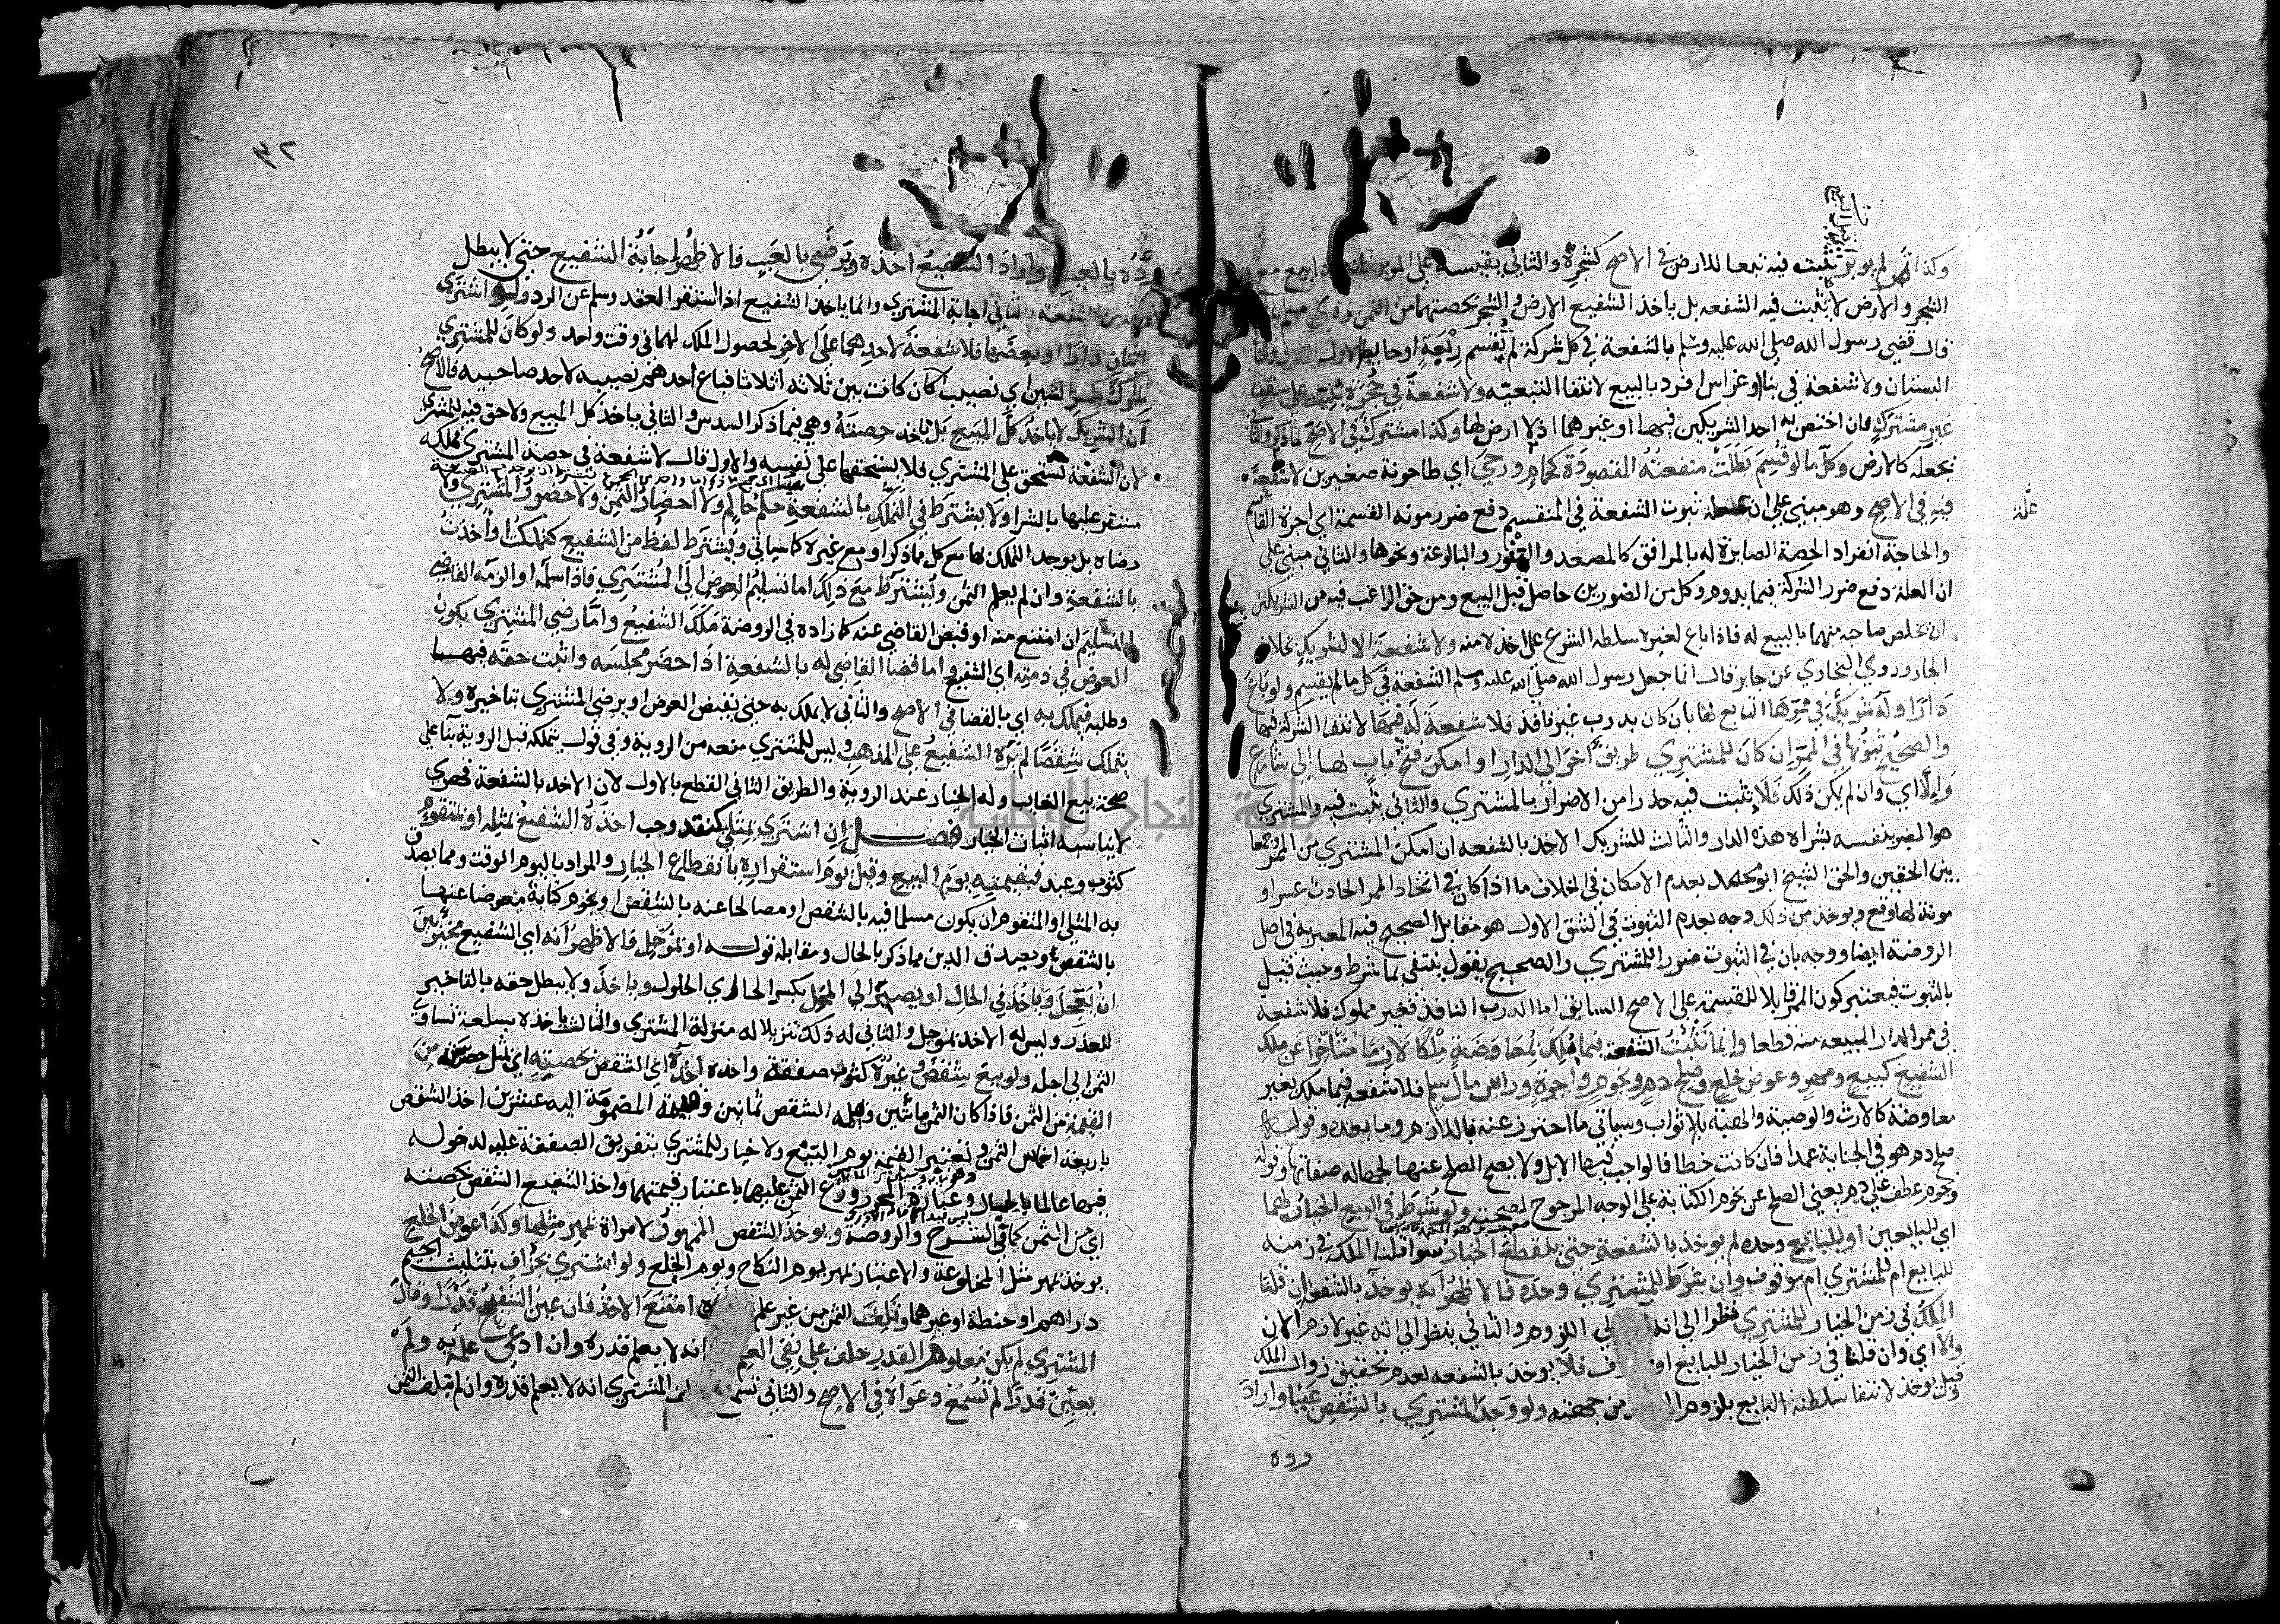 وكذا ثمر لم يوبر تثبت فيه تبعا للارض في الاصح كشجرة والثاني يقيسه على الموبر بيع مع
الشجر والارض لا يثبت فيه الشفعه بل ياخذ الشفيع الارض والشجر بحصتهما من الثمن روى مسلم عن
قال قضى رسول الله صلى الله عليه وسلم بالشفعة في كل شركة لم تقسم ربعة او حايط الاول
البستان ولا شفعة في بناء وغراس افرد بالبيع لانتفا التبعيه ولا شفعة في حجرة بنيت على سقف
غير مشترك فان اختص به احد الشريكين فيهما او غيرهما اذ لا ارض لها وكذا مشترك في الاصح لما ذكر والثاني
يجعله كالارض وكل ما لو قسم بطلت منفعته المقصودة كحمام ورحى اي طاحونة صغيرين لا شفعة
فيه في الاصح وهو مبني على ان علة ثبوت الشفعة في المنقسم دفع ضرر مونه القسمة اي اجرة القاسم
والحاجة افراد الحصة الصايرة له بالمرافق كالمصعد والمنور والبالوعة ونحوها والثاني مبني على
ان العلة دفع ضرر الشركة فيما يدوم وكل من الضررين حاصل قبل البيع ومن حق الراغب فيه من الشريكين
ان يخلص صاحبه منهما بالبيع له فاذا باع لغيره سلطه الشرع على اخذه منه ولا شفعة الا لشريك بخلاف
الجار وروي البخاري عن جابر قال انما جعل رسول الله صلى الله عليه وسلم الشفعة في كل ما لم يقسم ولو باع
دارا وله شريك في ممرها التابع لها بان كان بدرب غير نافذ فلا شفعة له فيها لانتفا الشركة فيها
والصحيح ثبوتها في الممر ان كان للمشتري طريق آخر الى الدار او امكن فتح باب لها الى شارع
والا اي وان لم يكن ذلك فلا يثبت فيه حذرا من الاضرار بالمشتري والثاني يثبت فيه والمشتري
هو المضر بنفسه بشراه هذه الدار والثالث للشريك الاخذ بالشفعه ان امكن المشتري من الممر جمعا
بين الحقين والحق الشيخ ابو محمد بعدم الامكان في الخلاف ما اذا كان في اتخاذ الممر الحادث عسر او
مونة لها وقع ويوخذ من ذلك وجه بعدم الثبوت في الشق الاول هو مقابل الصحيح فيه المعبر به في اصل
الروضة ايضا ووجه بان في الثبوت ضرر المشتري والصحيح يقول ينتفي بما شرط وحيث قيل
بالثبوت فيعتبر كون الممر قابلا للقسمة على الاصح السابق اما الدرب النافذ فغير مملوك فلا شفعة
في ممر الدار المبيعه منه قطعا وانما تثبت الشفعة فيما ملك بمعاوضة ملكا لازما متاخرا عن ملك
الشفيع كبيع ومهر وعوض خلع وصلح دم ونجوم واجرة وراس مال سلم فلا شفعه فيما ملك بغير
معاوضة كالارث والوصية والهبة بلا ثواب وسياتي ما احترز عنه باللازم وما بعده وقوله
صلح دم هو في الجناية عمدا فان كانت خطا فالواجب فيها الابل ولا يصح الصلح عنها لجهاله صفاتها وقوله
ونجوم عطف على دم يعني الصلح عن نجوم الكتابة على الوجه المرجوح لصحته ولو شرط في البيع الخيار لهما
اي للبايعين او للبايع وحده لم يوخذ بالشفعة حتى ينقطع الخيار سوا قلنا الملك في زمنه
للبايع ام للمشتري ام موقوف وان شرط للمشتري وحده فالاظهر انه يوخذ بالشفعة ان قلنا
الملك في زمن الخيار للمشتري نظرا الى انه اللزوم والثاني ينظر الى انه غير لازم الان
والا اي وان قلنا في زمن الخيار للبايع او فلا يوخذ بالشفعه لعدم تحقيق زوال الملك
وقيل يوخذ لانتفا سلطنة البايع بلزوم من جهته ولو وجد المشتري بالشقص عيبا واراد
رده
علة
٣٢
رده بالعيب واراد الشفيع اخذه ويرضى بالعيب فالاظهر اجابة الشفيع حتى لا يبطل
الشفعة والثاني اجابة المشتري وانما ياخذ الشفيع اذا استقر العقد وسلم عن الرد ولو اشترى
اثنان دارا او بعضها فلا شفعة لاحدهما على الاخر لحصول الملك لهما في وقت واحد ولو كان للمشتري
شرك بكسر الشين اي نصيب كان كانت بين ثلاثه اثلاثا فباع احدهم نصيبه لاحد صاحبيه فالاصح
ان الشريك لا ياخذ كل المبيع بل ياخذ حصته وهي فيما ذكر السدس والثاني ياخذ كل المبيع ولا حق فيه للمشتري
لان الشفعة تستحق على المشتري فلا يستحقها على نفسه والاول قال لا شفعة في حصة المشتري فملكه
مستقر عليها بالشرا ولا يشترط في التملك بالشفعة حكم حاكم ولا احضار الثمن ولا حضور المشتري ولا
رضاه بل يوجد التملك بها مع كل ما ذكر او مع غيره كما سياتي ويشترط لفظ من الشفيع كتملكت او اخذت
بالشفعة وان لم يعلم الثمن ويشترط مع ذلك اما تسليم العوض الى المشتري فاذا سلمه او الزمه القاضي
التسليم ان امتنع منه او قبض القاضي عنه كما زاده في الروضة ملك الشفيع واما رضى المشتري بكون
العوض في ذمته اي الشفيع واما قضا القاضي له بالشفعة اذا حضر مجلسه واثبت حقه فيها
وطلبه فيملك به اي بالقضا في الاصح والثاني لا يملك به حتى يقبض العوض او يرضى المشتري بتاخيره ولا
يتملك شقصا لم يره الشفيع على المذهب وليس للمشتري منعه من الروية وفي قول يتملكه قبل الروية بنا على
صحة بيع الغايب وله الخيار عند الروية والطريق الثاني القطع بالاول لان الاخذ بالشفعة قهري
لا يناسبه اثبات الخيار فصل ان اشترى بمثلي كنقد وجب اخذه الشفيع بمثله او بمتقوم
كثوب وعبد فبقيمته يوم البيع وقيل يوم استقراره بانقطاع الخيار والمراد باليوم الوقت ومما يصدق
به المثلي او المتقوم ان يكون مسلما فيه بالشقص او مصالحا عنه بالشقص او نجوم كتابة معوضا عنها
بالشقص ويصدق الدين مما ذكر بالحال ومقابله قوله او بموجل فالاظهر انه اي الشفيع مخير بين
ان يعجل وياخذ في الحال او يصبر الى المحل بكسر الحا اي الحلول وياخذ ولا يبطل حقه بالتاخير
للعذر وليس له الاخذ بموجل والثاني له ذلك تنزيلا له منزلة المشتري والثالث ياخذه بسلعة تساوي
الثمن الى اجله ولو بيع شقص وغيره كثوب صفقة واحدة اخذه اي الشقص بحصته اي بمثل حصته من
القيمة من الثمن فاذا كان الثمن مائتين وقيمة الشقص ثمانين وقيمة المضموم اليه عشرين اخذ الشقص
باربعة اخماس الثمن وتعتبر القيمة يوم البيع ولا خيار للمشتري بتفريق الصفقة عليه لدخوله
فيها عالما بالحال وعبارة المحرر وزع الثمن عليهما باعتبار قيمتهما واخذ الشفيع الشقص بحصته
اي من الثمن كما في الشرح والروضة ويوخذ الشقص الممهور لامراة بمهر مثلها وكذا عوض الخلع
يوخذ بمهر مثل المخلوعة والاعتبار بمهر يوم النكاح ويوم الخلع ولو اشترى بجزاف بتثليث الجيم
دراهم او حنطة او غيرهما وتلف الثمن من غير علم امتنع الاخذ فان عين الشفيع قدرا وقال
المشتري لم يكن معلوم القدر حلف على نفي العلم انه لا يعلم قدره وان ادعى علمه ولم
يعين قدرا لم تسمع دعواه في الاصح والثاني تسمع المشتري انه لا يعلم قدره وان لم يتلف الثمن